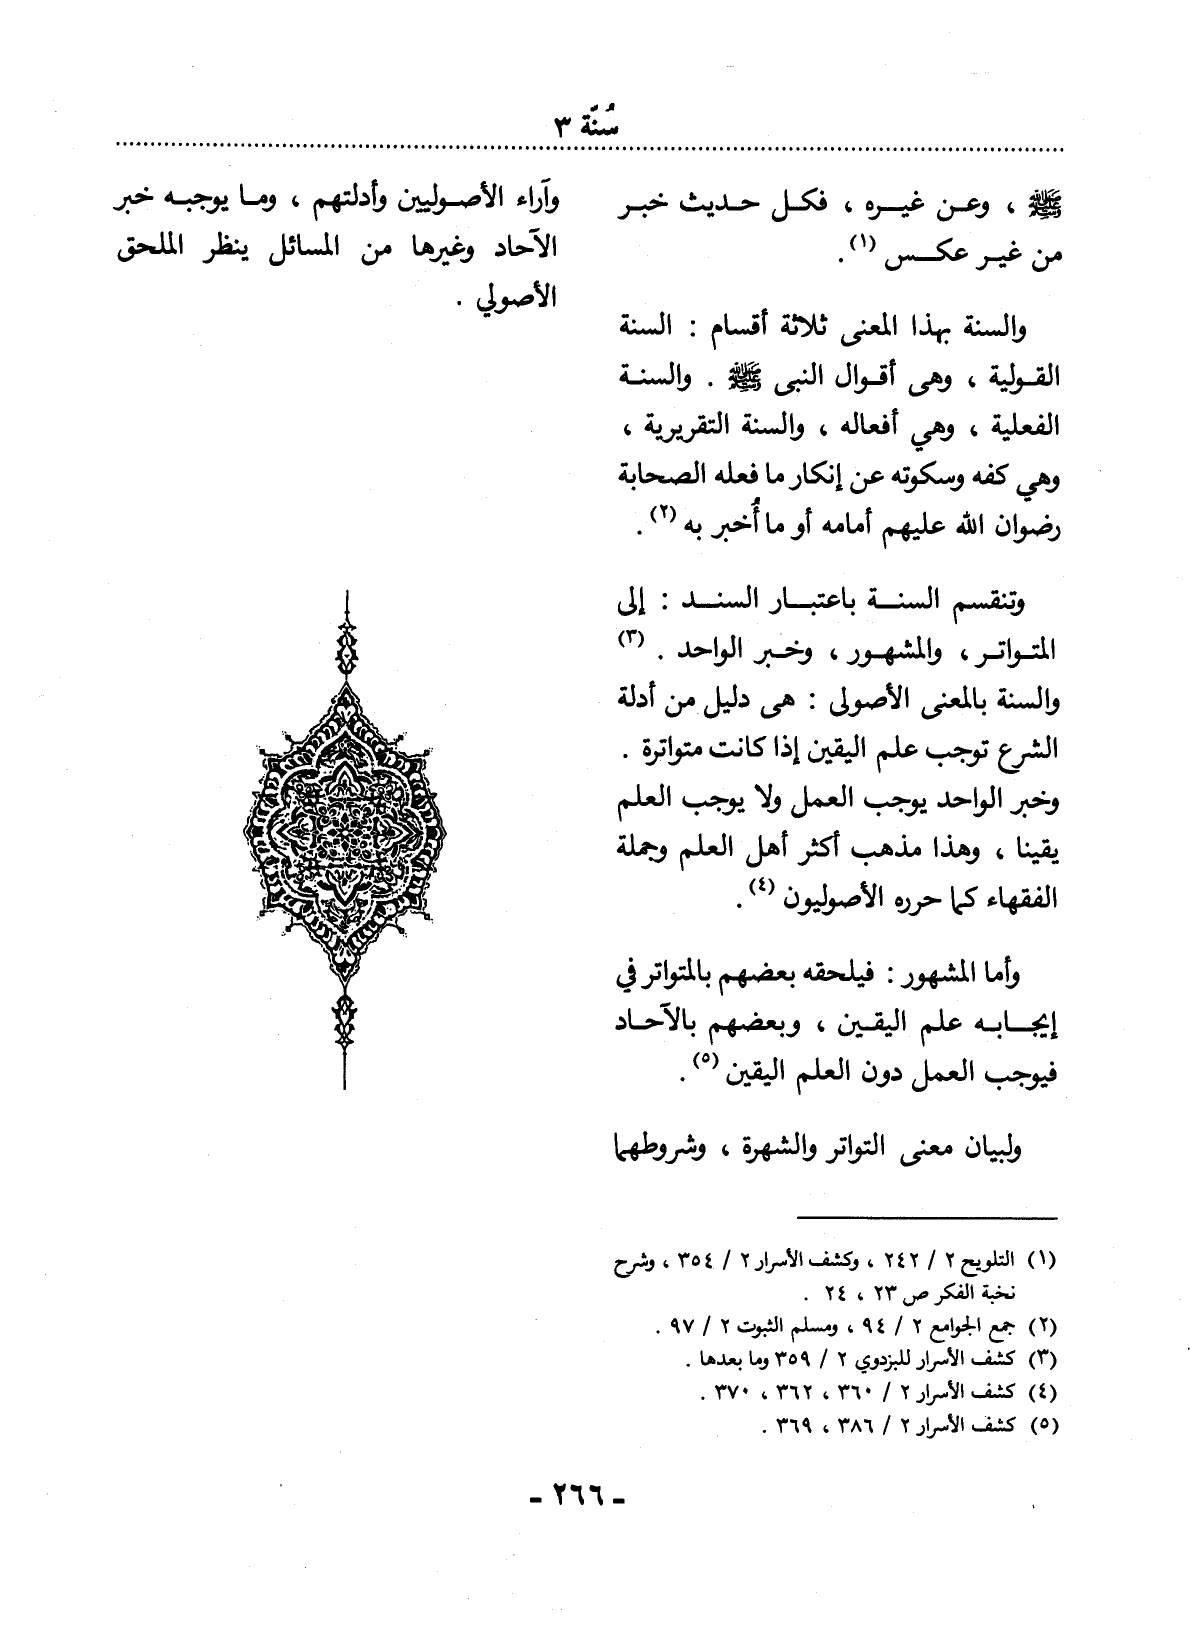 سُنّة ٣
ﷺ ، وعـن غيـره ، فكـل حـديث خبـر
من غيـر عكـس (١).
والسنة بهذا المعنى ثلاثة أقسام : السنة
القـولية ، وهى أقـوال النبى ﷺ . والسنـة
الفعلية ، وهي أفعاله ، والسنة التقريرية ،
وهي كفه وسكوته عن إنكار ما فعله الصحابة
رضوان الله عليهم أمامه أو ما أُخبر به (٢).
وتنقسم السنـة باعتبـار السنـد : إلى
المتـواتـر ، والمشهـور ، وخبـر الواحد . (٣)
والسنة بالمعنى الأصولى : هى دليل من أدلة
الشرع توجب علم اليقين إذا كانت متواترة .
وخبر الواحد يوجب العمل ولا يوجب العلم
يقينا ، وهذا مذهب أكثر أهل العلم وجملة
الفقهاء كما حرره الأصوليون (٤).
وأما المشهور : فيلحقه بعضهم بالمتواتر في
إيجـابـه علم اليقـين ، وبعضهم بالآحـاد
فيوجب العمل دون العلم اليقين (٥).
ولبيان معنى التواتر والشهرة ، وشروطهما
وآراء الأصـوليين وأدلتهم ، ومـا يوجبـه خبر
الآحاد وغيرها من المسائل ينظر الملحق
الأصولي .
(١) التلويح ٢ / ٢٤٢ ، وكشف الأسرار ٢ / ٣٥٤ ، وشرح
نخبة الفكر ص ٢٣ ، ٢٤ .
(٢) جمع الجوامع ٢ / ٩٤ ، ومسلم الثبوت ٢ / ٩٧ .
(٣) كشف الأسرار للبزدوي ٢ / ٣٥٩ وما بعدها .
(٤) كشف الأسرار ٢ / ٣٦٠ ، ٣٦٢ ، ٣٧٠ .
(٥) كشف الأسرار ٢ / ٣٨٦ ، ٣٦٩ .
ـ ٢٦٦ ـ